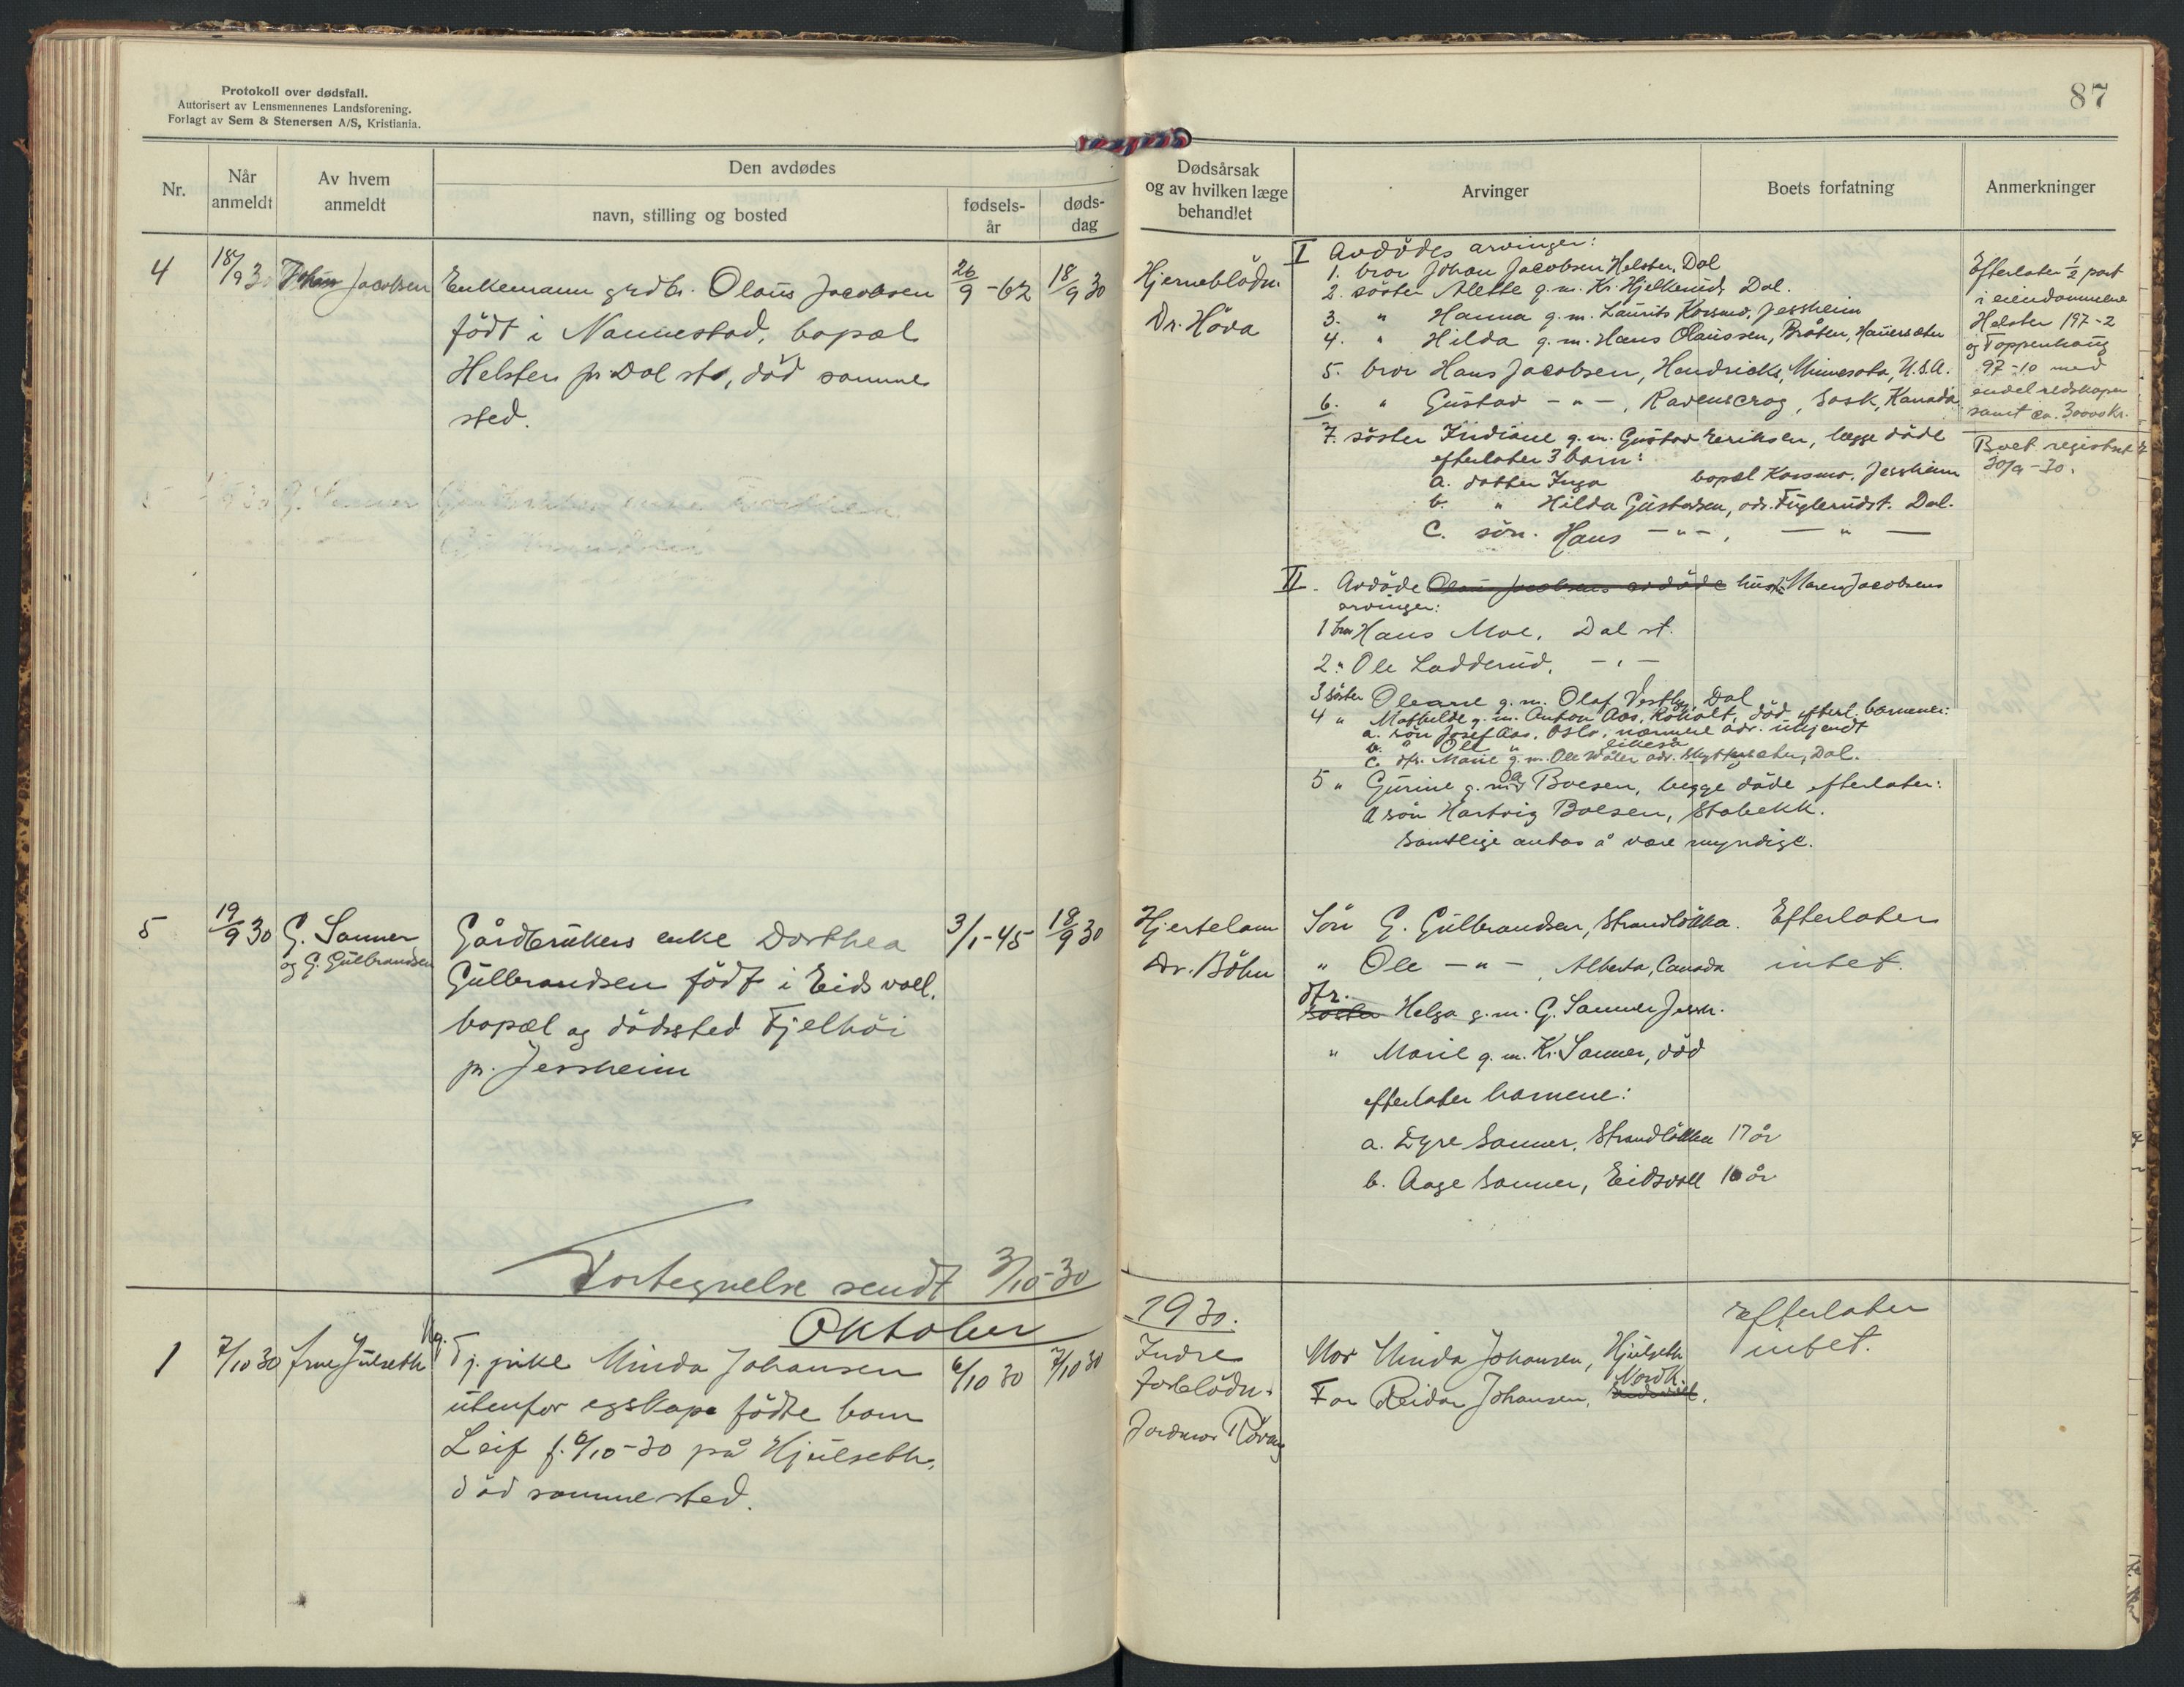 Protokoll over dødsfall.
Autorisert av Lensmennenes Landsforening.
Forlagt av Sem & Stenersen A/S, Kristiania.
Nr.
Når anmeldt
Av hvem anmeldt
Den avdødes
navn, stilling og bosted
fødsels-år
døds-dag
4
18/9 30
Johan Jacobsen
Enkemann grdbr. Olaus Jacobsen
født i Nannestad, bopæl
Helsten pr. Dal st., død samme
sted.
26/9 - 62
18/9 30
5
19/9 30
G. Sanner
og G. Gulbrandsen
Gårdbrukers enke Dorthea
Gulbrandsen født i Eidsvoll.
bopæl og dødssted Fjelhöi
pr. Jessheim
3/1-45
18/9 30
Fortegnelse sendt 3/10-30
Oktober
1
7/10 30
Arne Julseth
Ug. Tj. pike Minda Johansen
utenfor egskape födte barn
Leif f. 6/10-30 på Hjulseth,
död sammested.
6/10 30
7/10 30
87
Dødsårsak
og av hvilken læge
behandlet
Arvinger
Boets forfatning
Anmerkninger
Hjerneblödn.
Dr. Höva
I Avdödes arvinger:
1. bror Johan Jacobsen Helsten, Dal
2. söster Alette g.m. Kr. Hjelkerud, Dal.
3. " Hanna g.m. Laurits Korsmo, Jessheim
4. " Hilda g.m. Hans Olaussen, Bråten, Hauersæter
5. bror Hans Jacobsen, Hendricks, Minnesota, U.S.A.
6. " Gustav - " - , Ravenscrag, Sask, Kanada
7. söster Indiane g.m. Gustav Eriksen, begge döde
efterlater 3 barn:
a. datter Inga bopæl Korsmo, Jessheim
b. " Hilda Gustavsen, adr. Fuglerudst. Dal.
C. sön. Hans - " - , — " —
Efterlater 1/2 part
i eiendommene
Helsten 197-2
og Toppenhaug
97-10 med
endel redskaper
samt ca. 30000 Kr.
Boet registrert
30/9-30.
II. Avdöde Olaus Jacobsens avdöde hust. Maren Jacobsens
arvinger:
1 bror Hans Moe, Dal st.
2 " Ole Ladderud, - " -
3 söster Oleane g.m. Olaf Vestby, Dal
4 " Mathilde g.m. Anton Aas, Råholt, död efterl. barnene:
a. sön Josef Aas, Oslo, nærmere adr. ukjendt
b. " Ole " likeså
c. dtr. Marie g.m. Ole Wåler adr. Dal.
5 " Gurine g.m. Boesen, begge döde efterlater:
a sön Hartvig Boesen, Stabekk.
Samtlige antas å være myndige.
Hjertelam
Dr. Böhn
Sön G. Gulbrandsen, Strandlökka.
" Ole - " - , Alberta, Canada
dtr.
söster Helga g.m. G. Sanner Jessh.
" Marie g.m. Kr. Sanner, död
efterlater barnene:
a. Dyre Sanner, Strandlökka 17 år
b. Aage Sanner, Eidsvoll 16 år
Efterlater
intet.
1930.
Indre
forblödn.
Jordmor
Mor Minda Johansen, Hjulseth
Far Reidar Johansen, Nordk.
Efterlater
intet.